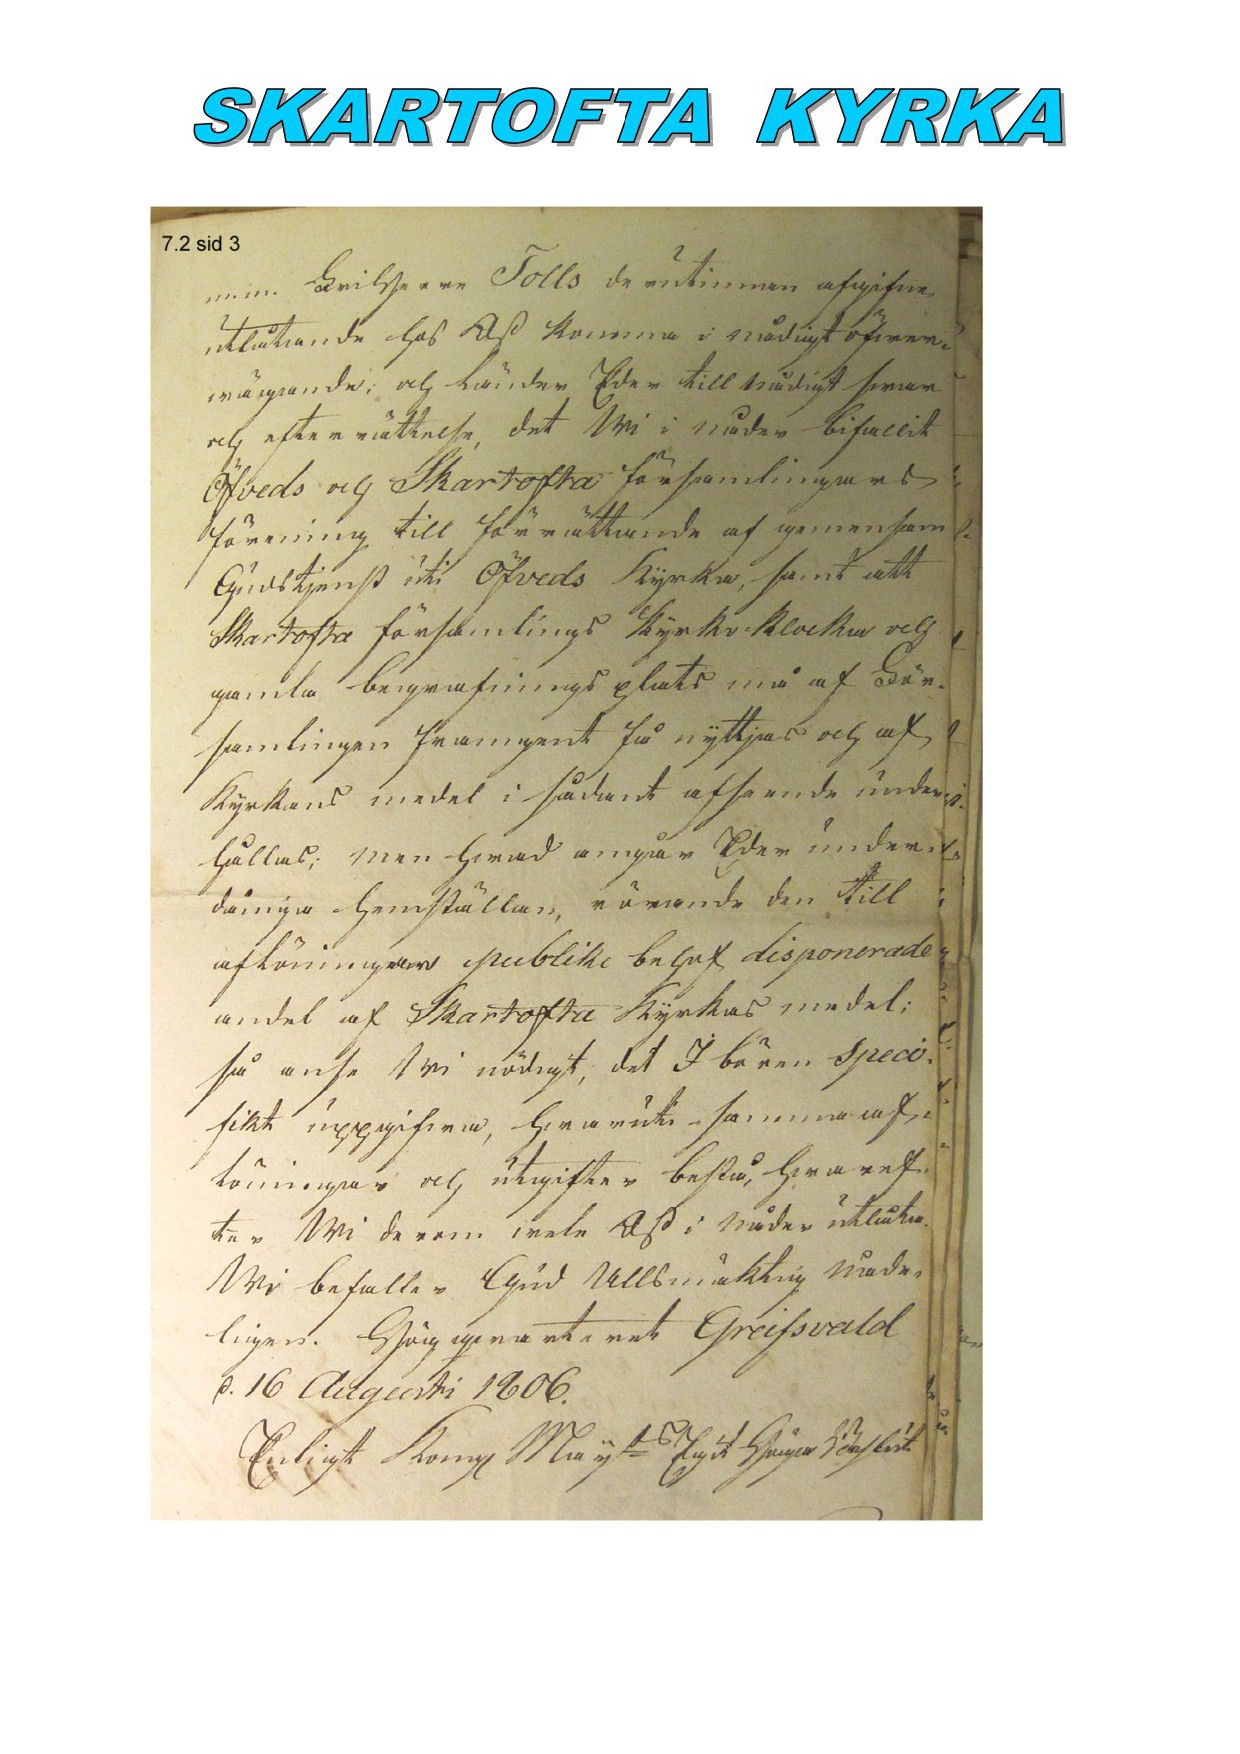 SKARTOFTA KYRKA
7.2 sid 3
m.m. Friherre Tolls derutinnan afgifne
utlåtande hos Oß komma i nådigt öfver-
vägande; och länder Eder till nådigt svar
och efterrättelse, det Wi i nåder bifallit
Öfveds och Skartofta församlingars
förening till förrättande af gemensam
Gudstjenst uti Öfveds Kyrka, samt att
Skartofta församlings Kyrko-Klocka och
gamla begrafnings plats må af För-
samlingen framgent få nyttjas och af
Kyrkans medel i sådant afseende under-
hållas; men hvad angår Eder under-
dåniga hemställan, rörande den till
aflöningar publike behof disponerade
andel af Skartofta Kyrkas medel;
så anse Wi nödigt, det I bören speci-
fikt uppgifva, hvaruti samma af-
löningar och utgifter bestå, hvaref-
ter Wi derom vele Oß i nåder utlåta.
Wi befalle Eder Gud Allsmäktig nåde-
ligen. Högqvarteret Greifsvald
d. 16 Augusti 1806.
Enligt Kongl May:ts